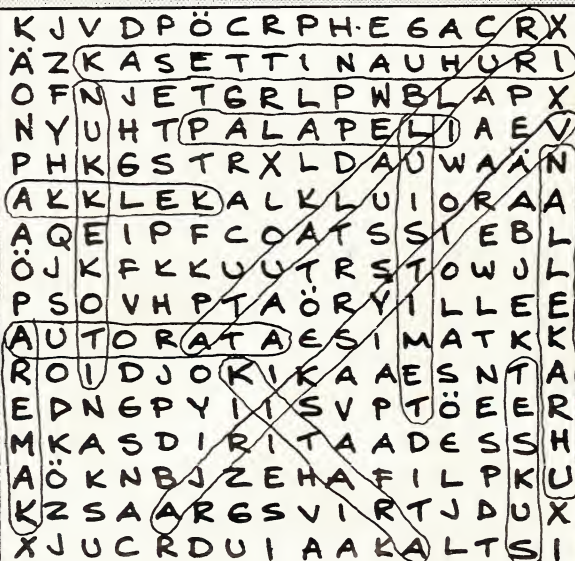 K J V D P Ö C R P H E G A C R X
Ä Z K A S E T T I N A U H U R I
O F N J E T G R L P W B L A P X
N Y U H T P A L A P E L I A E V
P H K G S T R X L D A U W A Ä N
A K K L E K A L K L U I O R A A
A Q E I P F C O A T S S I E B L
Ö J K F K K U U T R S T O W J L
P S O V H P T A Ö R Y I L L E E
A U T O R A T A E S I M A T K K
R O I D J O K I K A A E S N T A
E D N G P Y I I S V P T Ö E E R
M K A S D I R I T A A D E S S H
A Ö K N B J Z E H A F I L P K U
K Z S A A R G S V I R T J D U X
X J U C R D U I A A K A L T S I